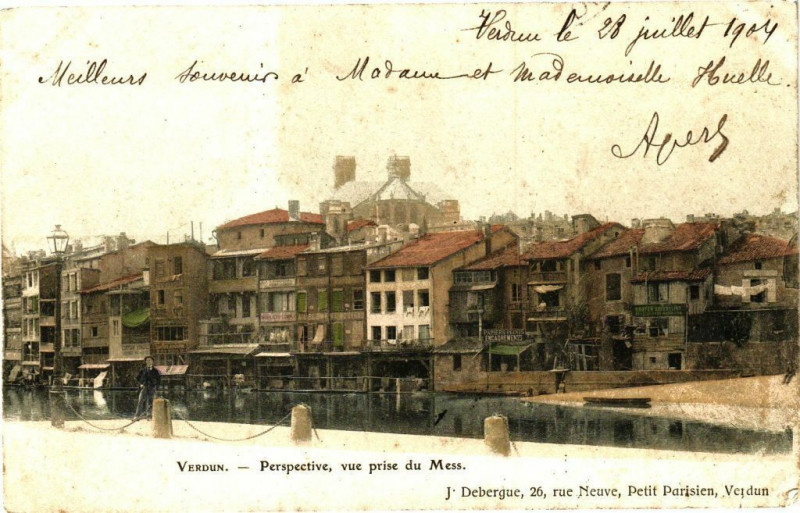 Verdun le 28 juillet 1904
Meilleurs Souvenirs à Madame et Mademoiselle Huelle.
ENCADREMENTS
VERDUN. — Perspective, vue prise du Mess.
J. Debergue, 26, rue Neuve, Petit Parisien, Verdun